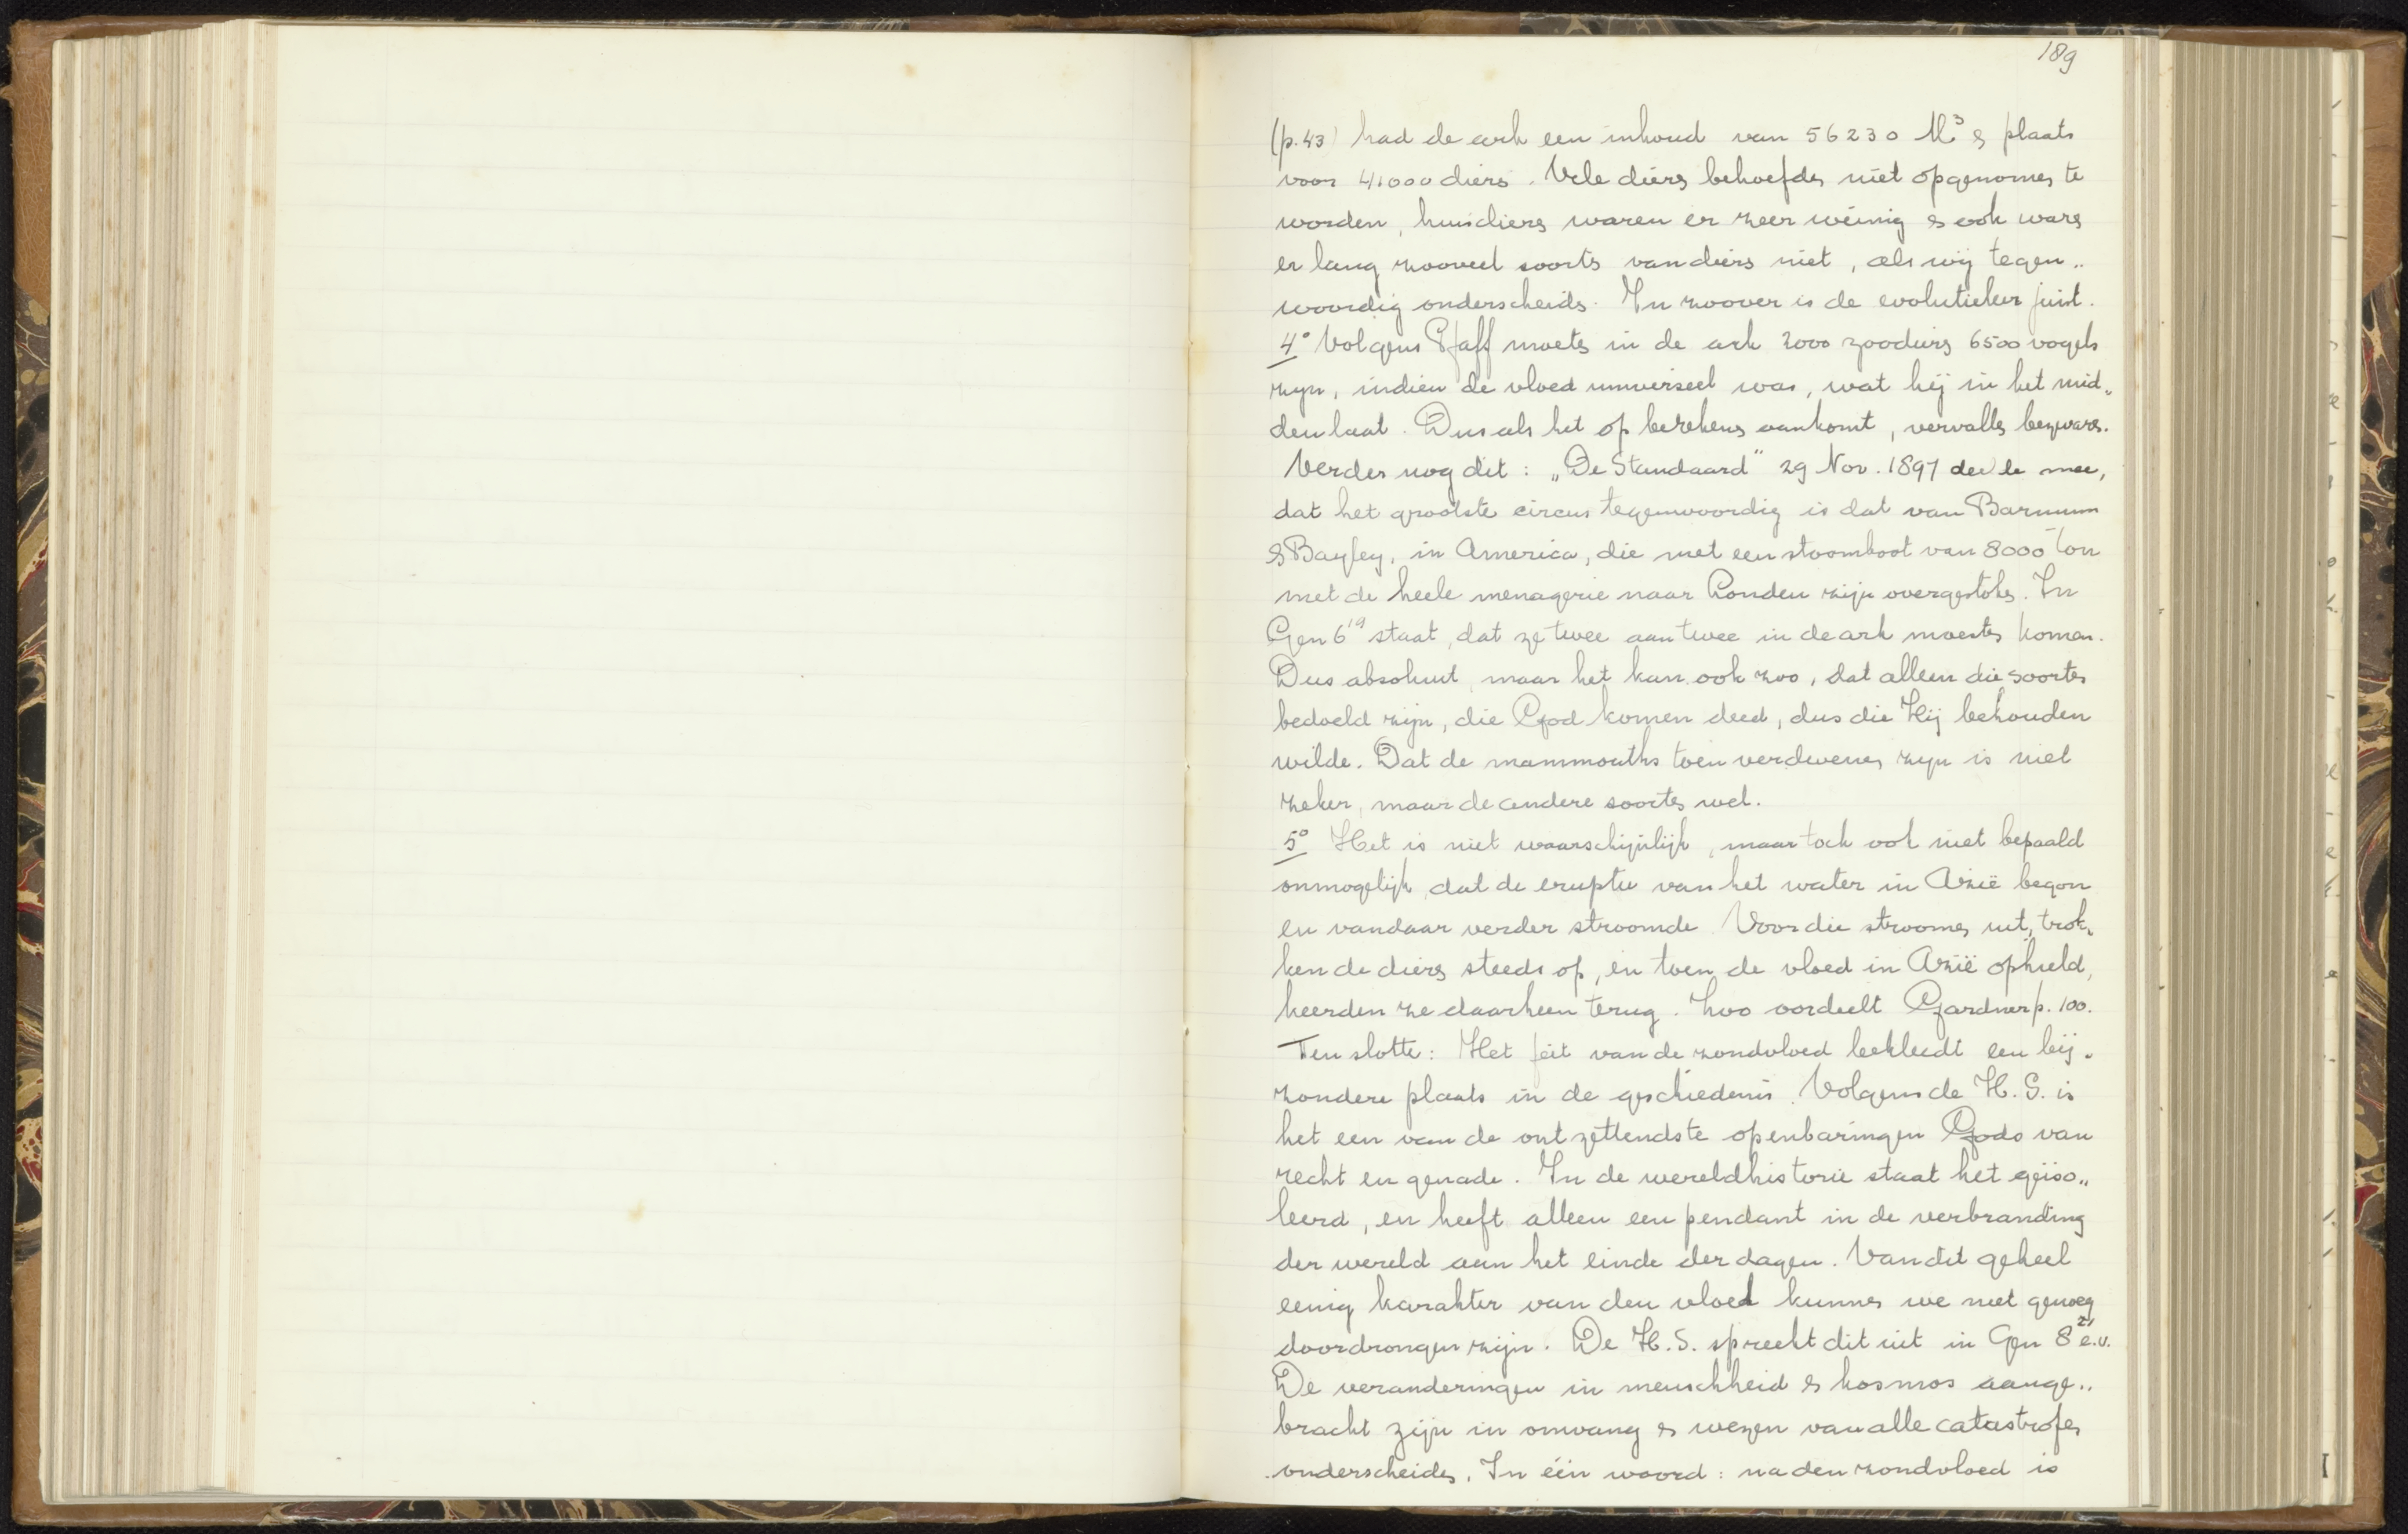 189
(p. 43) had de ark een inhoud van 56230 M³ & plaats
voor 41000 diers. Vele diers behoefdes niet opgenomes te
worden, huisdiers waren er zeer weinig & ook wars
er lang zooveel soorts van diers niet, als wij tegen„
woordig onderscheids. In zoover is de evolutieleer juist.
4° Volgens Pfaff moets in de ark 2000 zoodiers 6500 vogels
zijn, indien de vloed universeel was, wat hij in het mid„
den laat. Dus als het op berekens aankomt, vervalls bezwars.
Verder nog dit: „De Standaard" 29 Nov. 1897 deelde mee,
dat het grootste circus tegenwoordig is dat van Barnum
& Bayley, in America, die met een stoomboot van 8000 ton
met de heele menagerie naar Londen zijn overgestokes. In
Gen 6¹⁹ staat, dat ze twee aan twee in de ark moestes komen.
Dus absoluut, maar het kan ook zoo, dat alleen die soortes
bedoeld zijn, die God komen deed, dus die Hij behouden
wilde. Dat de mammouths toen verdwenes zijn is niet
zeker, maar de andere soortes wel.
5° Het is niet waarschijnlijk, maar toch ook niet bepaald
onmogelijk, dat de eruptie van het water in Azië begon
en vandaar verder stroomde. Voor die stroomes uit, trok„
ken de diers steeds op, en toen de vloed in Azië ophield,
keerden ze daarheen terug. Zoo oordeelt Gardner p. 100.
Ten slotte: Het feit van de zondvloed bekleedt een bij„
zondere plaats in de geschiedenis. Volgens de H. S. is
het een van de ontzettendste openbaringen Gods van
recht en genade. In de wereldhistorie staat het geïso„
leerd, en heeft alleen een pendant in de verbranding
der wereld aan het einde der dagen. Van dit geheel
eenig karakter van den vloed kunnes we niet genoeg
doordrongen zijn. De H. S. spreekt dit uit in Gen 8²¹ e.v.
De veranderingen in menschheid & kosmos aange„
bracht zijn in omvang & wezen van alle catastrofes
onderscheides. In één woord: na den zondvloed is